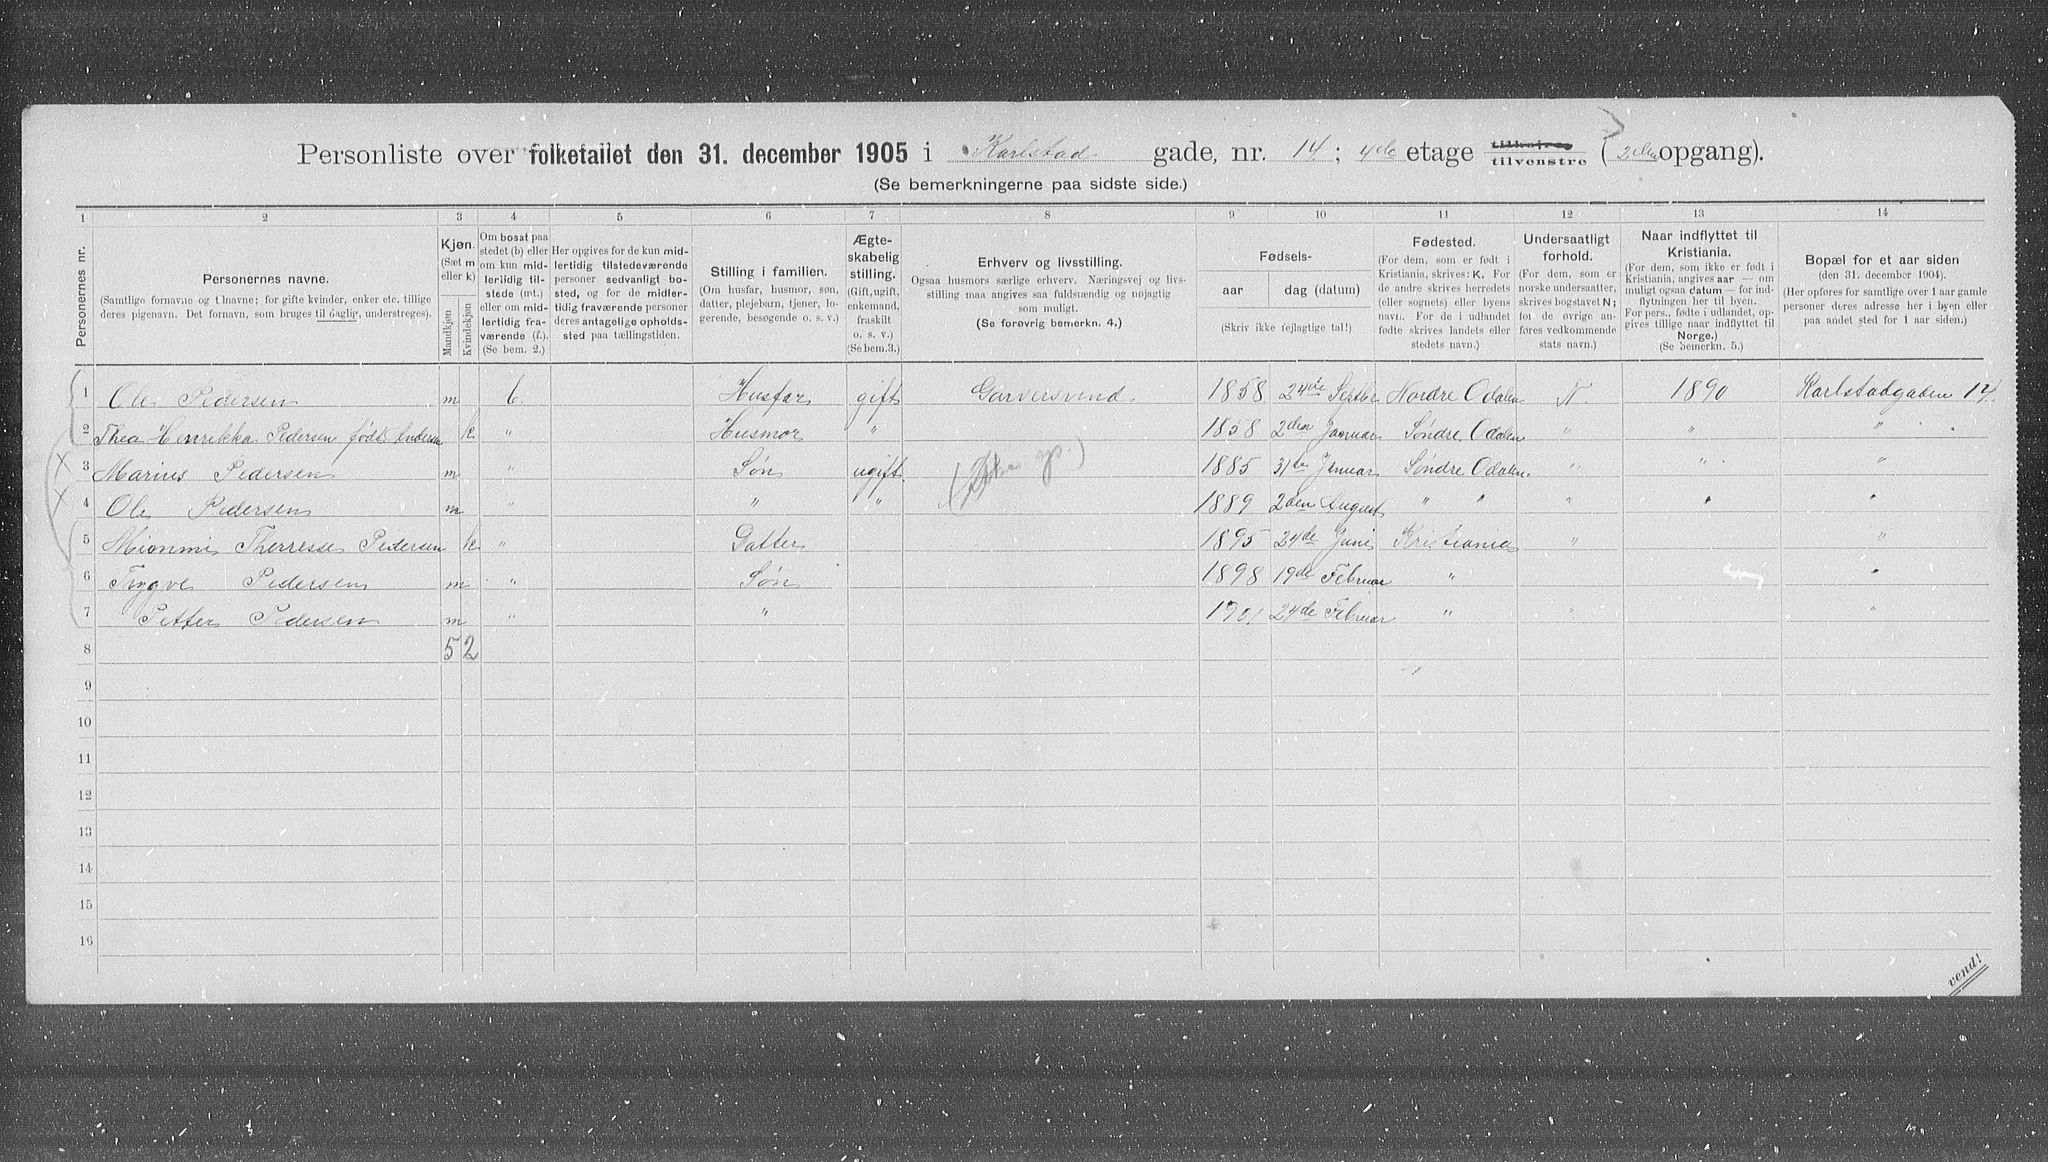 Personliste over folketallet den 31. december 1905 i Karlstad gade, nr. 14; 4de etage tilhøire tilvenstre (2den opgang).
(Se bemerkningerne paa sidste side.)
1 2 3 4 5 6 7 8 9 10 11 12 13 14
Personernes nr.
Personernes navne.
(Samtlige fornavne og tilnavne; for gifte kvinder, enker etc. tillige deres pigenavn. Det fornavn, som bruges til daglig, understreges).
Kjøn.
(Sæt m eller k)
Mandkjøn
Kvindekjøn
Om bosat paa stedet (b) eller om kun midlertidig tilstede (mt.) eller om midlertidig fraværende (f.). (Se bem. 2.)
Her opgives for de kun midlertidig tilstedeværende personer sedvanligt bosted, og for de midlertidig fraværende personer deres antagelige opholdssted paa tællingstiden.
Stilling i familien.
(Om husfar, husmor, søn, datter, plejebarn, tjener, logerende, besøgende o. s. v.)
Ægteskabelig stilling.
(Gift, ugift, enkemand, fraskilt o. s. v.) (Se bem. 3.)
Erhverv og livsstilling.
Ogsaa husmors særlige erhverv. Næringsvej og livsstilling maa angives saa fuldstændig og nøjagtig som muligt.
(Se forøvrig bemerkn. 4.)
Fødsels-
aar dag (datum)
(Skriv ikke fejlagtige tal!)
Fødested.
(For dem, som er født i Kristiania, skrives: K. For de andre skrives herredets (eller sognets) eller byens navn. For de i udlandet fødte skrives landets eller stedets navn.)
Undersaatligt forhold.
(For dem, som er norske undersaatter, skrives bogstavet N; for de øvrige anføres vedkommende stats navn.)
Naar indflyttet til Kristiania.
(For dem, som ikke er født i Kristiania, angives aar — om muligt ogsaa datum — for indflytningen her til byen. For pers., fødte i udlandet, opgives tillige naar indflyttet til Norge.)
(Se bemerkn. 5.)
Bopæl for et aar siden
(den 31. december 1904).
(Her opføres for samtlige over 1 aar gamle personer deres adresse her i byen eller paa andet sted for 1 aar siden.)
1 Ole Pedersen m b Husfar gift Garversvend 1858 24de Septbr Nordre Odalen N. 1890 Karlstadgaden 14.
2 Thea Henrikka Pedersen født Andersen k " Husmor " 1858 2den Januar Søndre Odalen " " "
3 Marius Pedersen m " Søn ugift 1885 31te Januar Søndre Odalen " " "
4 Ole Pedersen m " " " 1889 2den August " " " " "
5 Mionmi Therresse Pedersen k " Datter 1895 24de Juni Kristiania " "
6 Trygve Pedersen m " Søn 1898 19de Februar " "
7 Petter Pedersen m " " 1901 24de Februar " " "
8 5 2
9
10
11
12
13
14
15
16
vend!